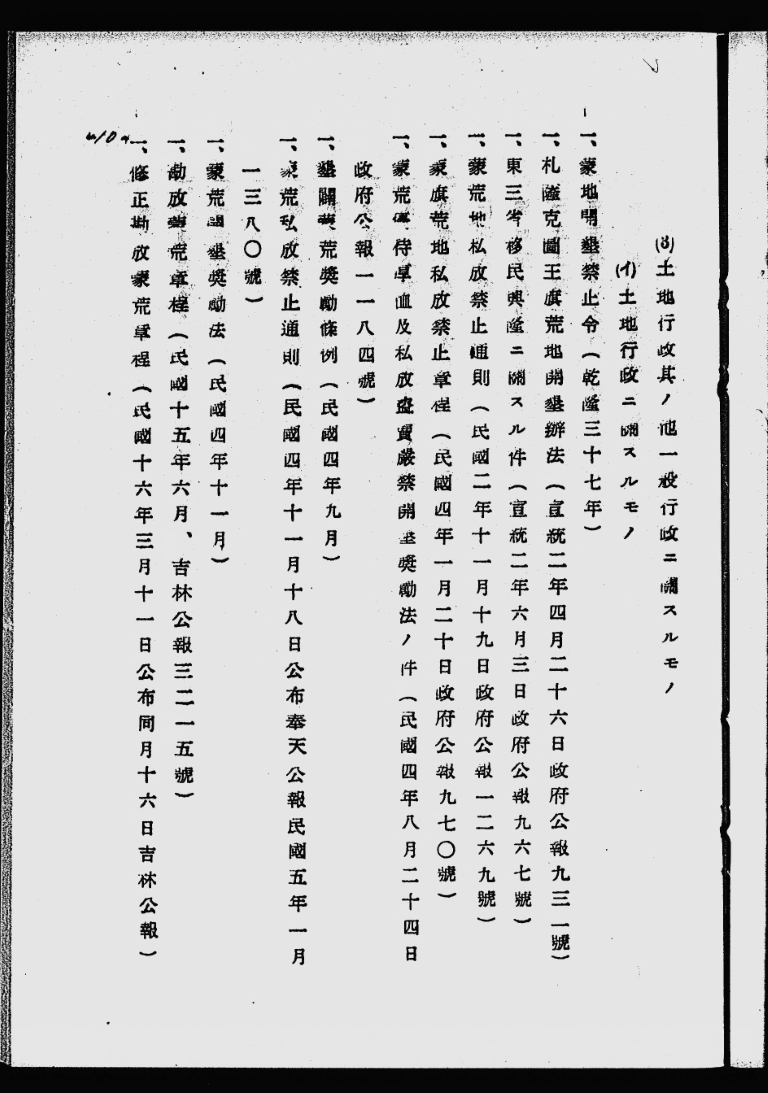 (3)土地行政其ノ他一般行政ニ關スルモノ
(イ)土地行政ニ關スルモノ
一、蒙地開墾禁止令(乾隆三十七年)
一、札薩克圖王旗荒地開墾辦法(宣統二年四月二十六日政府公報九三一號)
一、東三省移民興隆ニ關スル件(宣統二年六月三日政府公報九六七號)
一、蒙荒地私放禁止通則(民國二年十一月十九日政府公報一二六九號)
一、蒙旗荒地私放禁止章程(民國四年一月二十日政府公報九七〇號)
一、蒙荒優待厚血及私放盜賣嚴禁開墾奬勵法ノ件(民國四年八月二十四日
政府公報一一八四號)
一、墾闢蒙荒奬勵條例(民國四年九月)
一、蒙荒私放禁止通則(民國四年十一月十八日公布奉天公報民國五年一月
一三八〇號)
一、蒙荒開墾奬勵法(民國四年十一月)
一、勘放蒙荒章程(民國十五年六月、吉林公報三二一五號)
一、修正勘放蒙荒章程(民國十六年三月十一日公布同月十六日吉林公報)